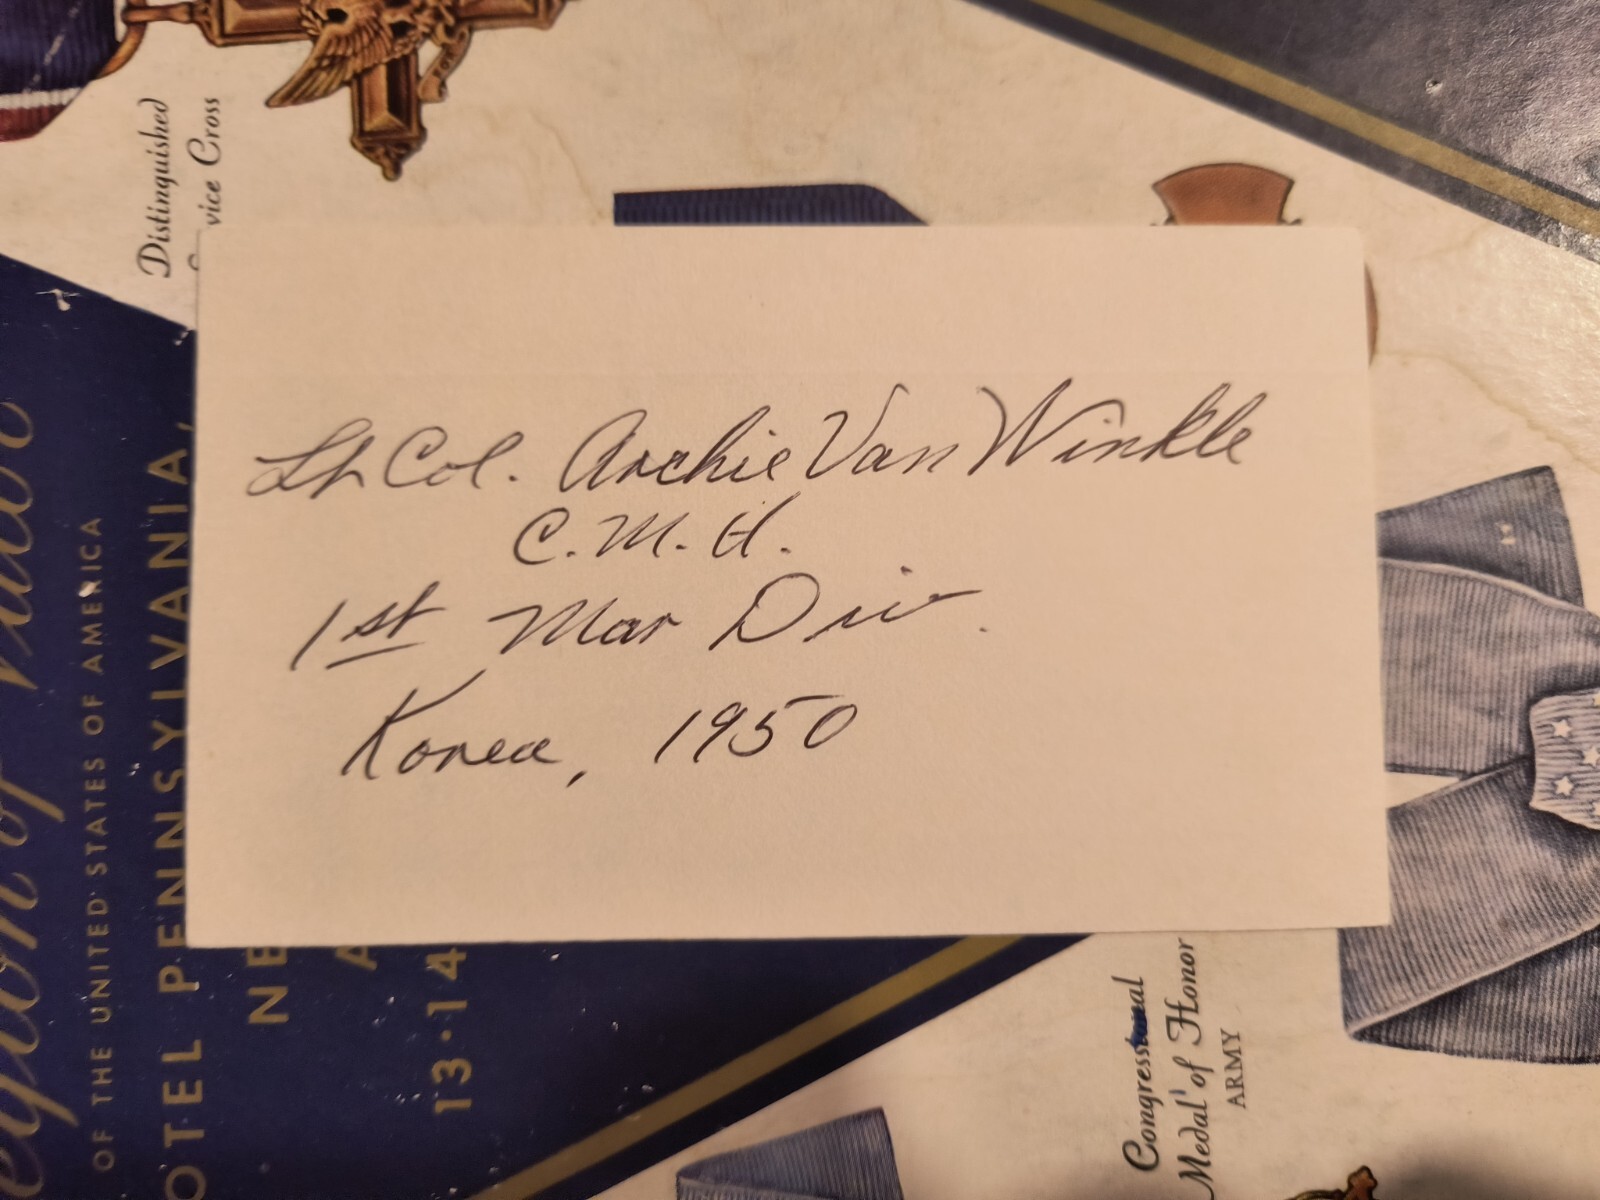 Lt Col. Archie Van Winkle
C. M. H.
1st Mar Div.
Korea, 1950
Distinguished
vice Cross
egion of Valor
OF THE UNITED STATES OF AMERICA
OTEL PENNSYLVANIA,
NE
A
13·14
Congressional
Medal of Honor
ARMY